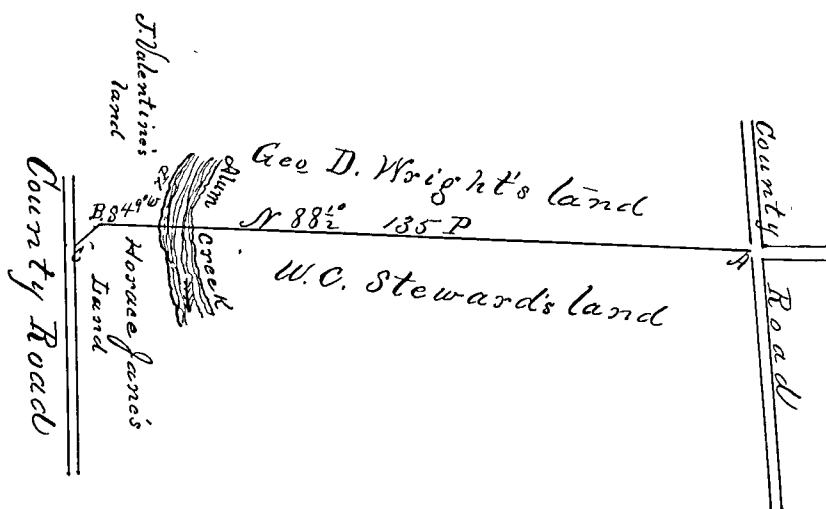 J. Valentine's
land
County Road
B. S 49° W
C
Horace Jane's
Land
Alum
Creek
Geo D. Wright's land
N 88½° 135 P
W. C. Steward's land
A
County
Road